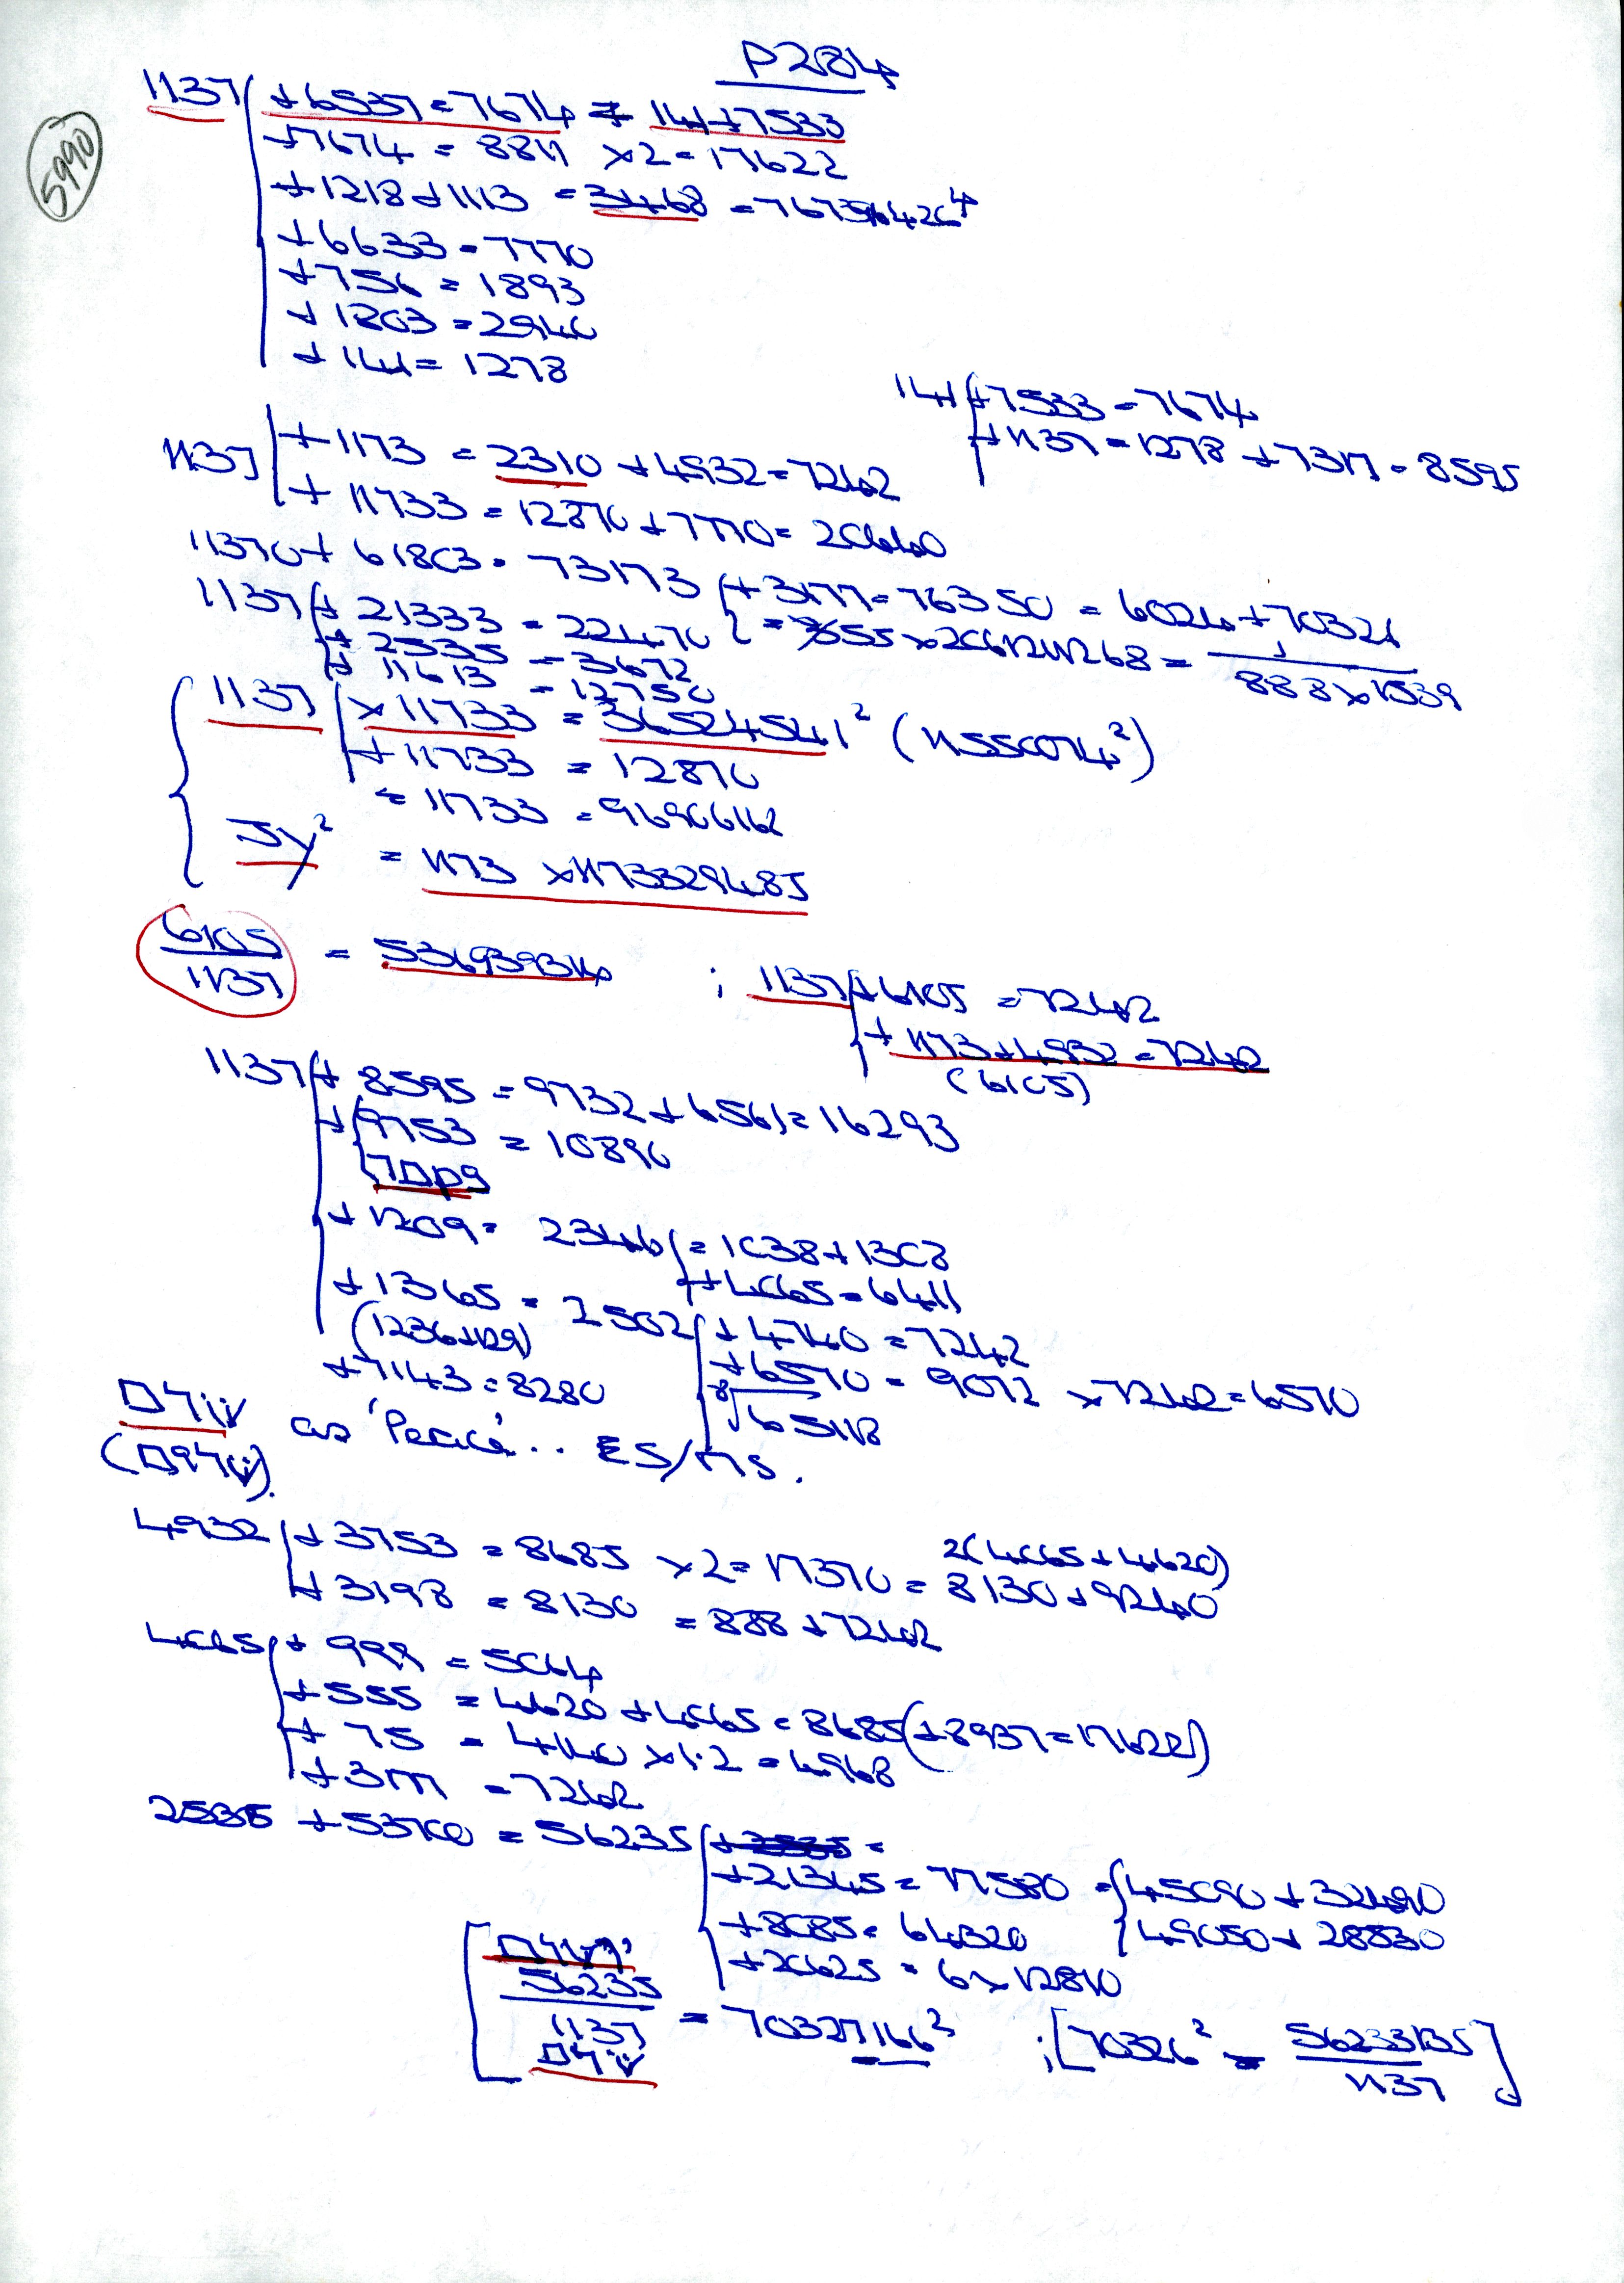 P284
5990
1137 +6537 = 7674 = 141+7533
+7674 = 8811 ×2 = 17622
+1218+1113 = 3468 = 76739426⁴
+6633 = 7770
+756 = 1893
+1803 = 2940
+141 = 1278
141 +7533 = 7674
+1137 = 1278 +7317 = 8595
1137 +1173 = 2310 +4932 = 7242
+ 11733 = 12870 +7770 = 20640
11370 + 61803 = 73173 +3177 = 76350 = 6024+70326
1137 + 21333 = 22470
+ 2535 = 3672
+ 11613 = 12750
= 3555 × 206121268 = 1 / 888×1539
1137 × 11733 = 36524541² (11550074²)
+ 11733 = 12870
= 11733 = 96906162
Jy² = 1173 × 1173329485
6105/1137 = 53693931 ; 1137 +6105 = 7242
+ 1173+4932 = 7242
(6105)
1137 + 8595 = 9732 + 6561 = 16293
+ 9753 = 10890
+1209 = 2346 = 1038+1308
+4065 = 6411
+1365 = 2502 +4740 = 7242
(1236+129) +6570 = 9072 ×7242 = 6570
+7143 = 8280 ⁸√65118
as 'Peace'.. ES/MS.
4932 + 3753 = 8685 ×2 = 17370 = 8130+9240
2(4065+4620)
+ 3198 = 8130 = 888+7242
4065 + 999 = 5064
+555 = 4620 +4065 = 8685 (+8937 = 17622)
+ 75 = 4140 ×1.2 = 4968
+3177 = 7242
2535 + 53700 = 56235
+21345 = 77580 = 45090 + 32490
49050 + 28530
+8085 = 64320
+20625 = 6×12810
56235/1137 = 70327166² ; [70326² = 56233135/1137]